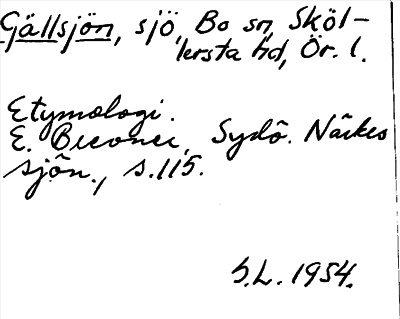 Gällsjön, sjö, Bo sn, Sköl-
lersta hd, Ör. l.
Etymologi.
E. Brevner, Sydö. Närkes
sjön., s.115.
S.L. 1954.